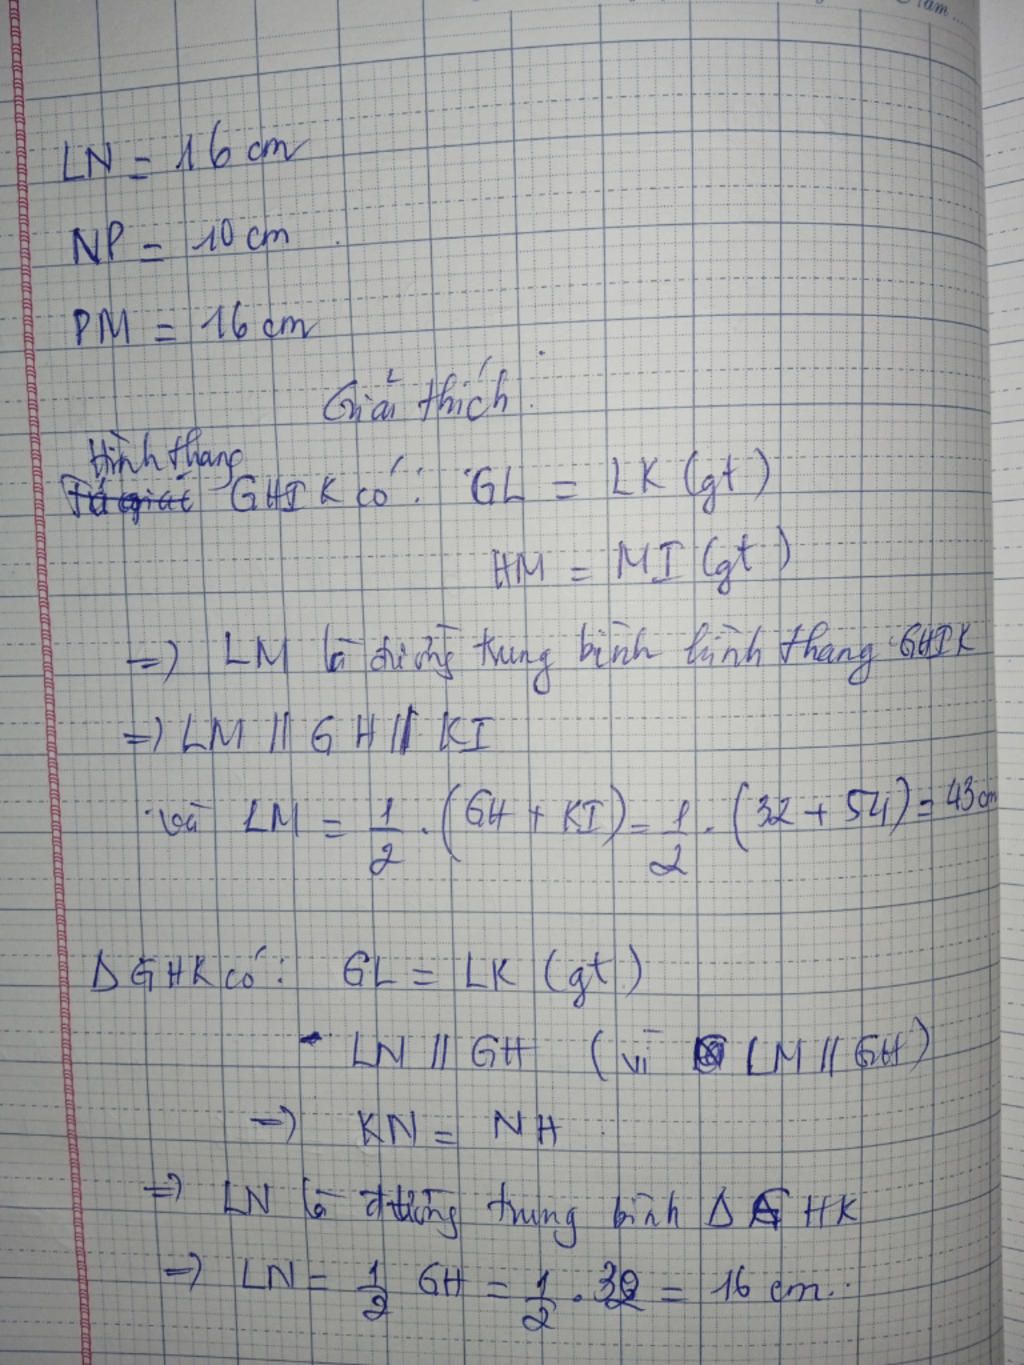 LN = 16 cm
NP = 10 cm
PM = 16 cm
Giải thích:
Hình thang
Tứ giác GHIK có: GL = LK (gt)
HM = MI (gt)
=> LM là đường trung bình hình thang GHIK
=> LM // GH // KI
và LM = 1/2 . (GH + KI) = 1/2 . (32 + 54) = 43 cm
Δ GHK có: GL = LK (gt)
LN // GH (vì LM // GH)
=> KN = NH
=> LN là đường trung bình Δ GHK
=> LN = 1/2 GH = 1/2 . 32 = 16 cm.